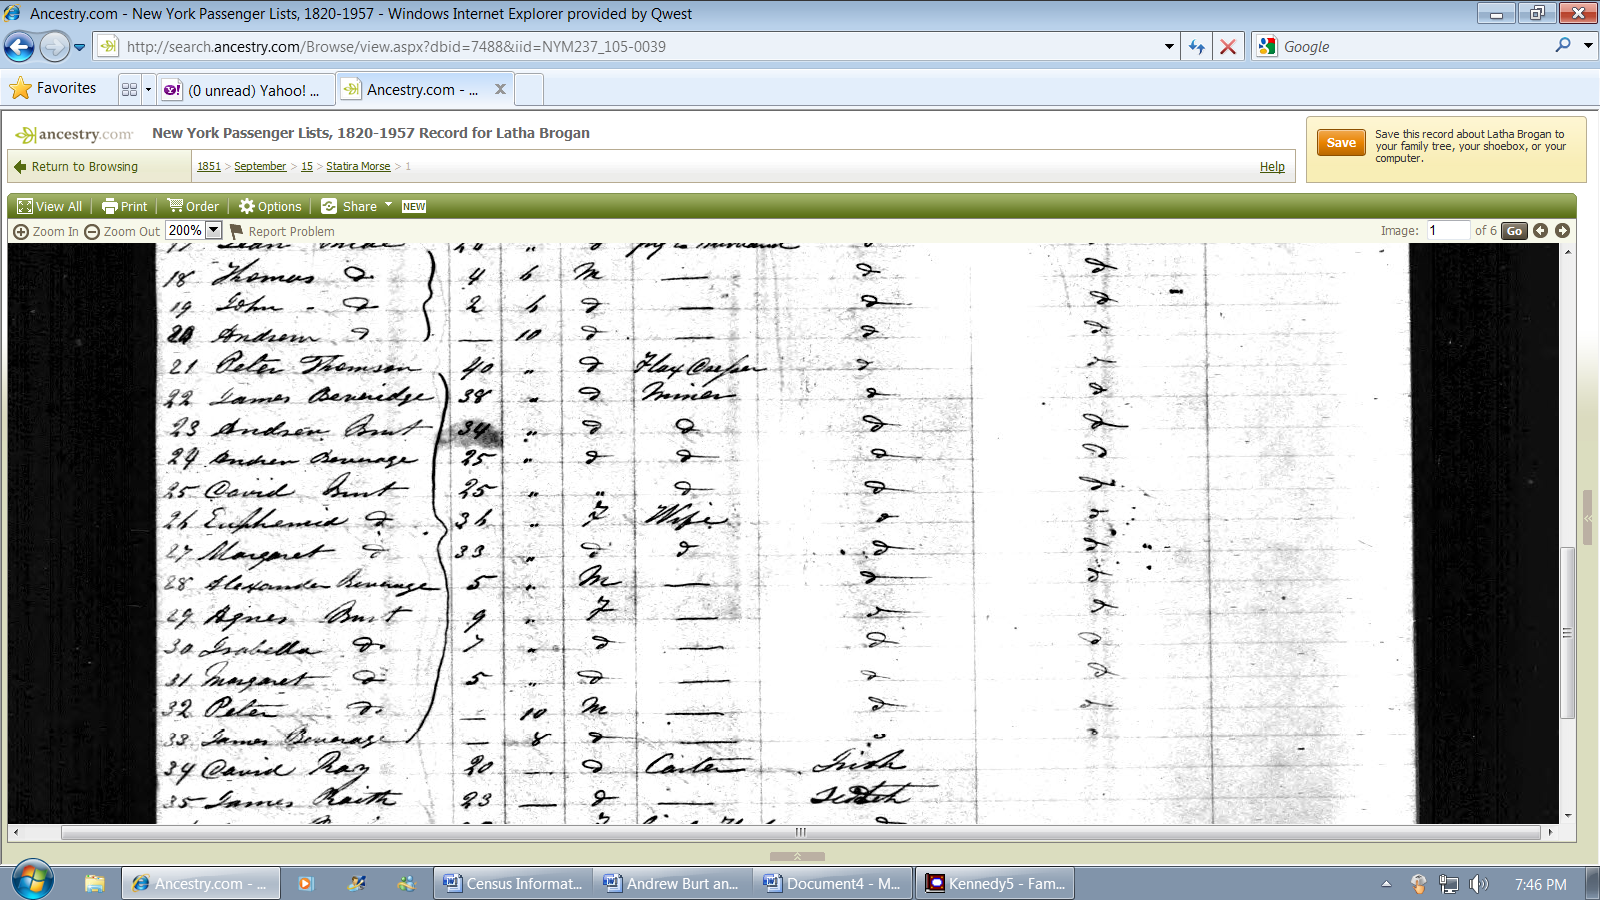 Ancestry.com - New York Passenger Lists, 1820-1957 - Windows Internet Explorer provided by Qwest
http://search.ancestry.com/Browse/view.aspx?dbid=7488&iid=NYM237_105-0039
Google
Favorites
(0 unread) Yahoo! ...
Ancestry.com - ...
ancestry.com
New York Passenger Lists, 1820-1957 Record for Latha Brogan
Save
Save this record about Latha Brogan to
your family tree, your shoebox, or your
computer.
Return to Browsing
1851 > September > 15 > Statira Morse > 1
Help
View All Print Order Options Share NEW
Zoom In Zoom Out 200% Report Problem
Image: 1 of 6 Go
18 Thomas d 4 6 M — d d
19 John - d 2 6 d — d d
20 Andrew d — 10 d — d d
21 Peter Thomson 40 " d Flax d d
22 James Beveridge 38 " d Miner d d
23 Andrew Burt 34 " d d d d
24 Andrew Beverage 25 " d d d d
25 David Burt 25 " " d d d
26 Euphemia d 36 " F Wife d d
27 Margaret d 33 " d d d d
28 Alexander Beverage 5 " M — d d
29 Agnes Burt 9 " F — d d
30 Isabella do 7 " d — d d
31 Margaret do 5 " d — d d
32 Peter do — 10 M — d d
33 James Beverage — 8 d — "
34 David Ray 20 — d Carter Irish
35 James Raith 23 — d — Scotch
Ancestry.com - ...
Census Informat...
Andrew Burt an...
Document4 - M...
Kennedy5 - Fam...
7:46 PM